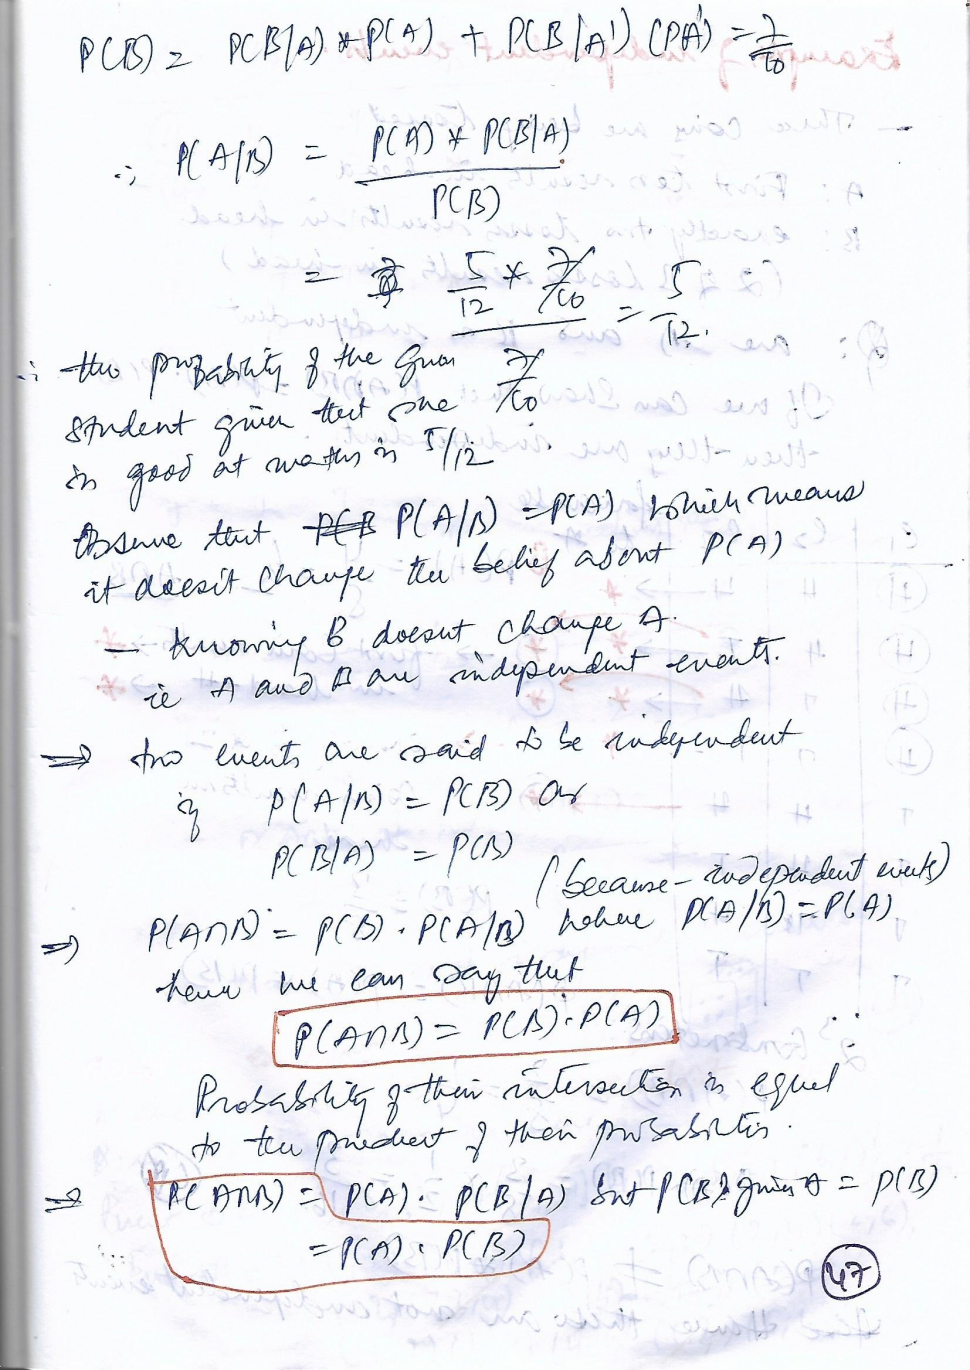 P(B) = P(B/A) * P(A) + P(B/A') (PA') = 7/10
∴ P(A/B) = P(A) * P(B/A) / P(B)
= 5/12 * 7/10 / 7/10 = 5/12.
∴ the probability of the
student given that she
is good at maths is 5/12
Observe that P(A/B) = P(A) which means
it doesn't change the belief about P(A)
— Knowing B doesnt change A.
ie A and B are independent events.
⇒ two events are said to be independent
if P(A/B) = P(B) or
P(B/A) = P(B)
(because - independent events)
⇒ P(A∩B) = P(B) · P(A/B) where P(A/B) = P(A)
hence we can say that
P(A∩B) = P(B) · P(A)
Probability of their intersection is equal
to the product of their probabilities.
⇒ P(A∩B) = P(A) · P(B/A) but P(B) given A = P(B)
= P(A) · P(B)
47